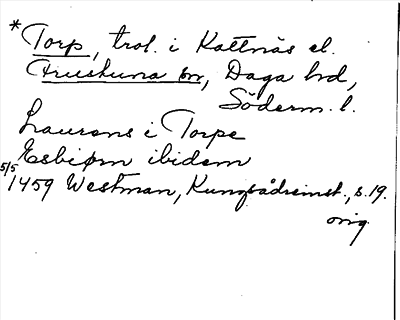 * Torp, trol. i Kattnäs el.
Frustuna sn, Daga hd,
Söderm. l.
Laurens i Torpe
Esbiørn ibidem
5/5 1459 Westman, Kungsådreinst., s. 19.
orig.